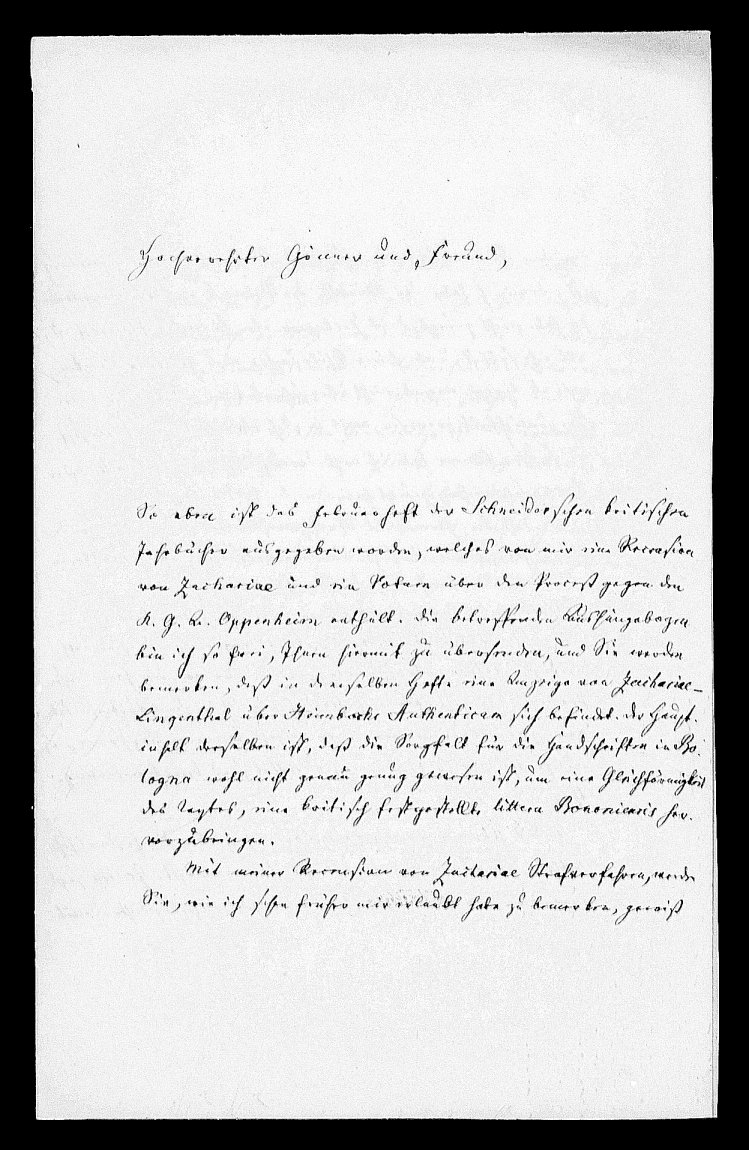 Hochverehrter Gönner und Freund,
So eben ist das Februarheft der Schneiderschen kritischen
Jahrbücher ausgegeben worden, welches von mir eine Recension
von Zachariae und ein Votum über den Proceß gegen den
K. G. R. Oppenheim enthält. Die betreffenden Aushängebogen
bin ich so frei, Ihnen hiermit zu übersenden, und Sie werden
bemerken, daß in demselben Hefte eine Anzeige von Zachariae-
Lingenthal über Heimbachs Authenticum sich befindet. Der Haupt-
inhalt derselben ist, daß die Sorgfalt für die Handschriften in Bo-
logna wohl nicht genau genug gewesen ist, um eine Gleichförmigkeit
des Textes, eine kritisch festgestellte littera Bononiensis her-
vorzubringen.
Mit meiner Recension von Zachariae Strafverfahren, werden
Sie, wie ich schon früher mir erlaubt habe zu bemerken, gewiß